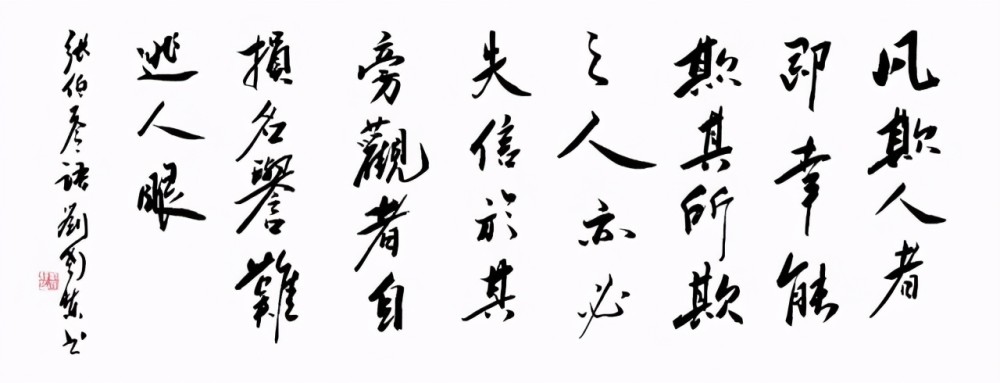 凡欺人者
即幸能
欺其所欺
之人亦必
失信於其
旁觀者自
損名譽難
逃人眼
張伯苓語劉书